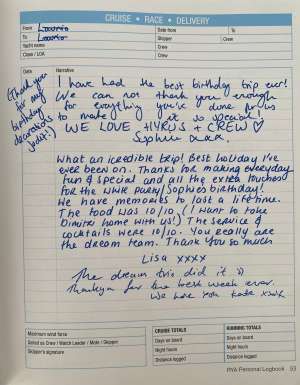 CRUISE • RACE • DELIVERY
From Lavrio
Date from
To
To Lavrio
Skipper
Crew
Yacht name
Crew
Class / LOA
Crew
Date
Narrative
(Thank you
for my
birthday
decorations
I have had the best birthday trip ever!
We can not thank you enough
for everything you've done for us
to make it so special!
WE LOVE HYRUS + CREW ♡
Sophie xxx.
What an incredible trip! Best holiday I've
ever been on. Thanks for making everyday
fun & special and all the extra touches
for the WHITE PARTY/Sophies birthday!
We have memories to last a lifetime.
The food was 10/10 (I want to take
Dimitri home with us!) The service &
cocktails were 10/10. You really are
the dream team. Thank you so much
Lisa xxxx
The dream this did it
Thankyou for the best week ever.
We love you
Maximum wind force
Sailed as Crew / Watch Leader / Mate / Skipper
Skipper's signature
CRUISE TOTALS
Days on board
Night hours
Distance logged
RUNNING TOTALS
Days on board
Night hours
Distance logged
RYA Personal Logbook 53